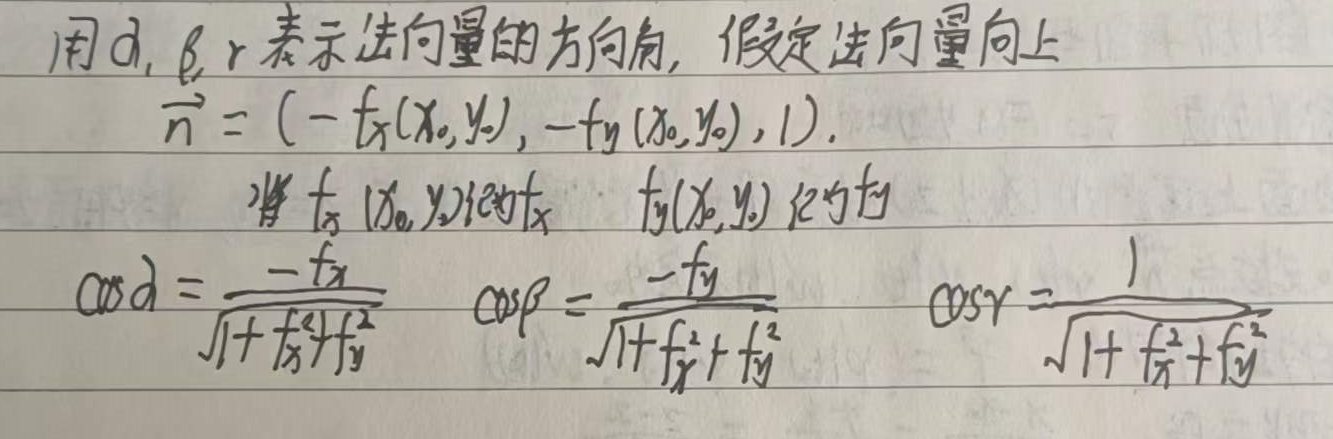 用α, β, γ表示法向量的方向角, 假定法向量向上
n⃗ = (-fx(x₀,y₀), -fy(x₀,y₀), 1).
将 fx(x₀,y₀)记为fx fy(x₀,y₀)记为fy
cosα = -fx/√(1+fx²+fy²) cosβ = -fy/√(1+fx²+fy²) cosγ = 1/√(1+fx²+fy²)